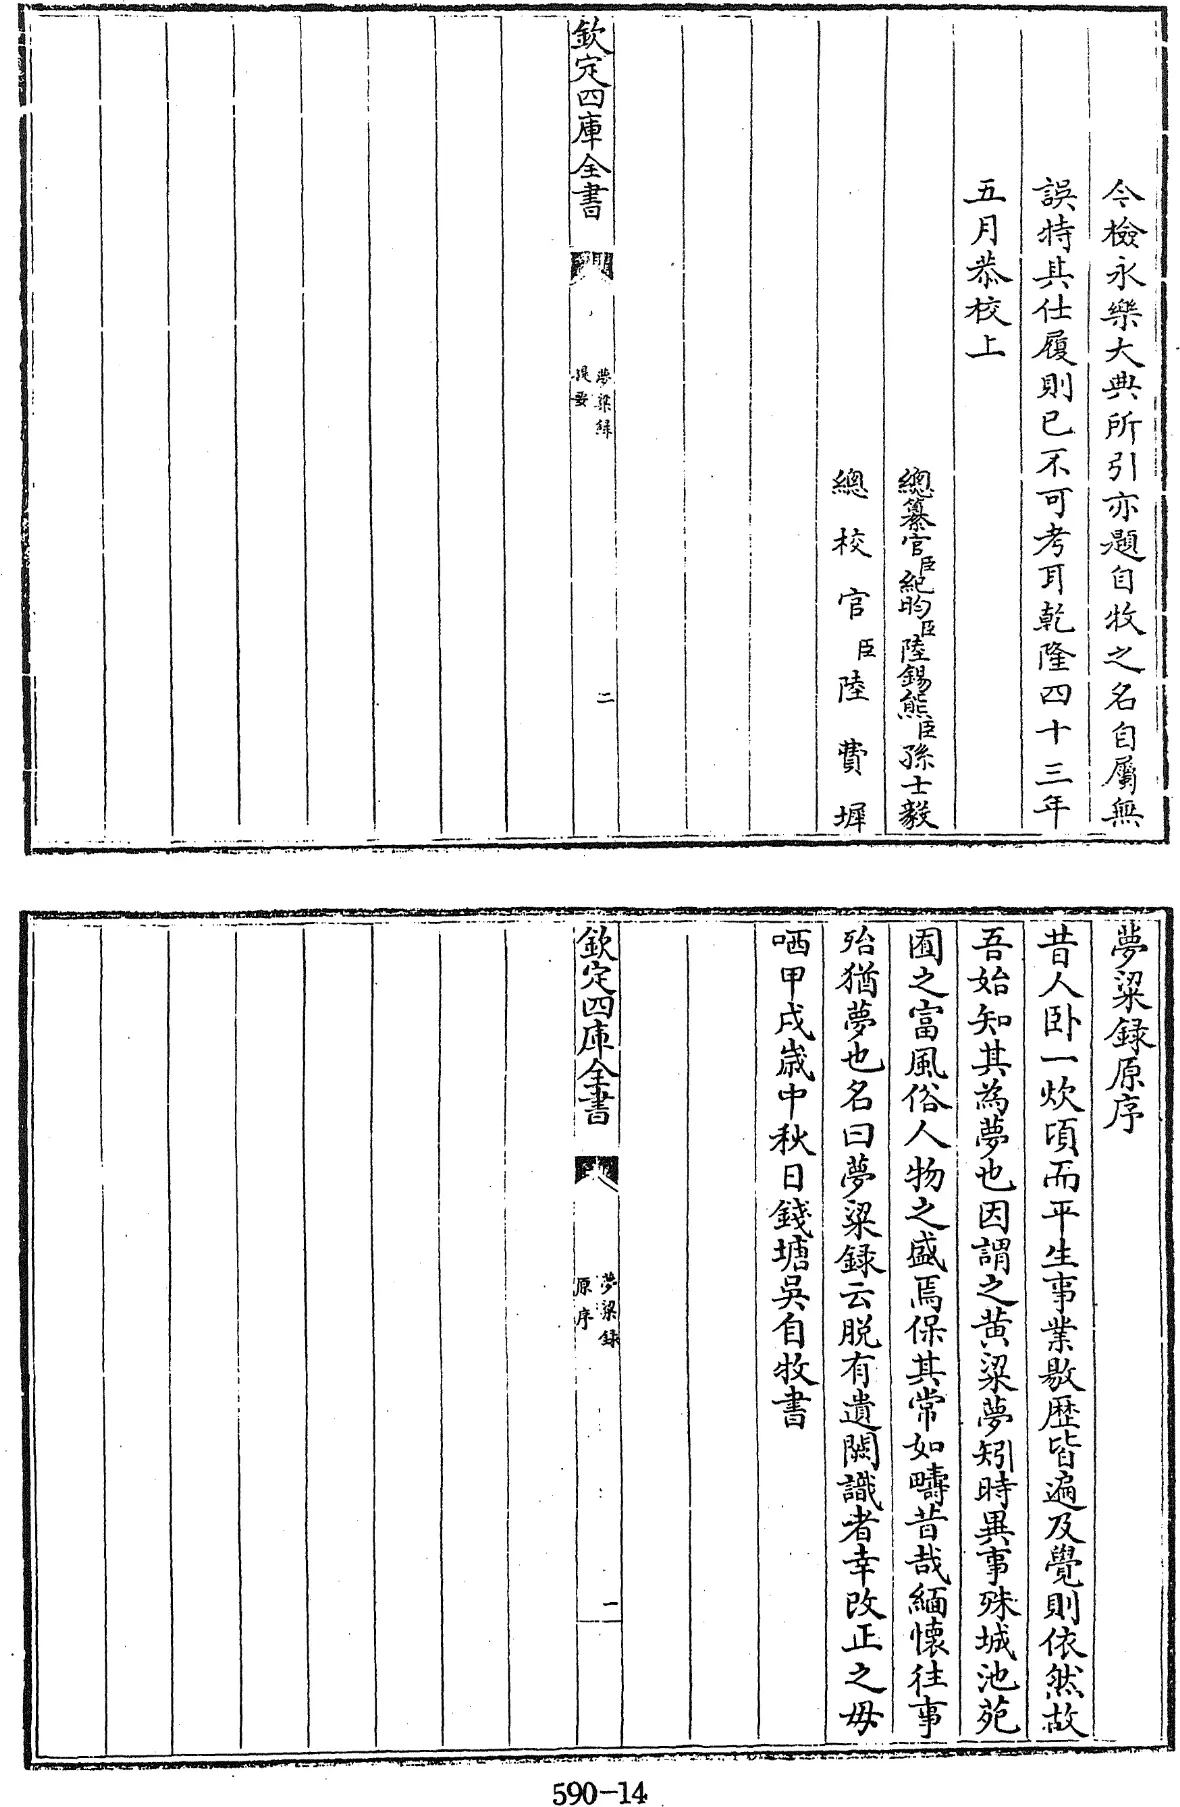 今檢永樂大典所引亦題自牧之名自屬無
誤特其仕履則已不可考耳乾隆四十三年
五月恭校上
總纂官臣紀昀臣陸錫熊臣孫士毅
總校官臣陸費墀
欽定四庫全書
夢粱録
提要
二
夢粱録原序
昔人卧一炊頃而平生事業敭歷皆遍及覺則依然故
吾始知其為夢也因謂之黄粱夢矧時異事殊城池苑
囿之富風俗人物之盛焉保其常如疇昔哉緬懷往事
殆猶夢也名曰夢粱録云脱有遺闕識者幸改正之毋
哂甲戌歲中秋日錢塘吳自牧書
欽定四庫全書
夢粱録
原序
一
590-14